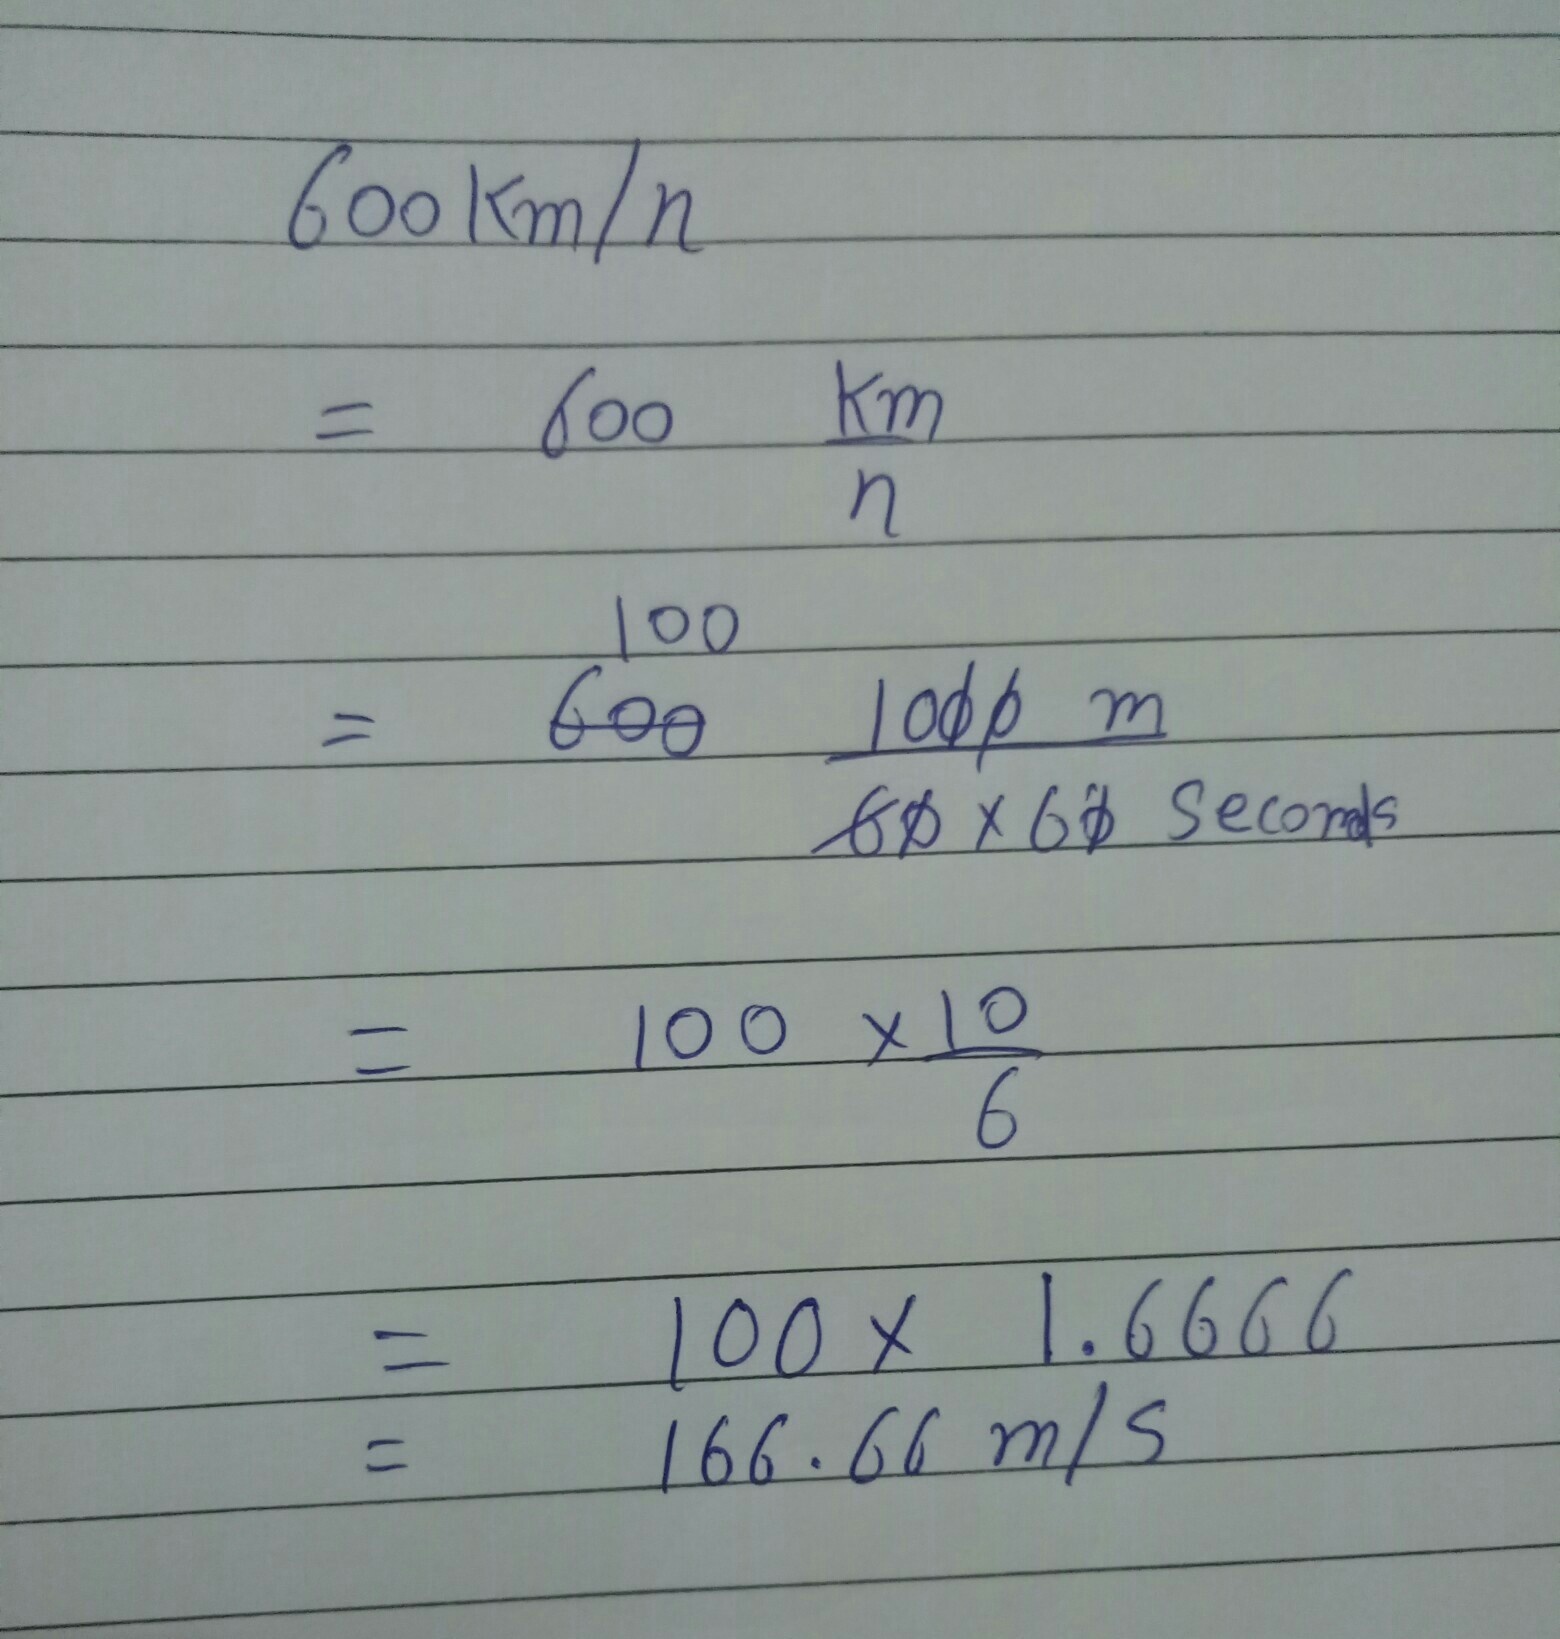 600 Km/h
= 600 Km
h
100
= 600 1000 m
60 x 60 Seconds
= 100 x 10
6
= 100 x 1.6666
= 166.66 m/s